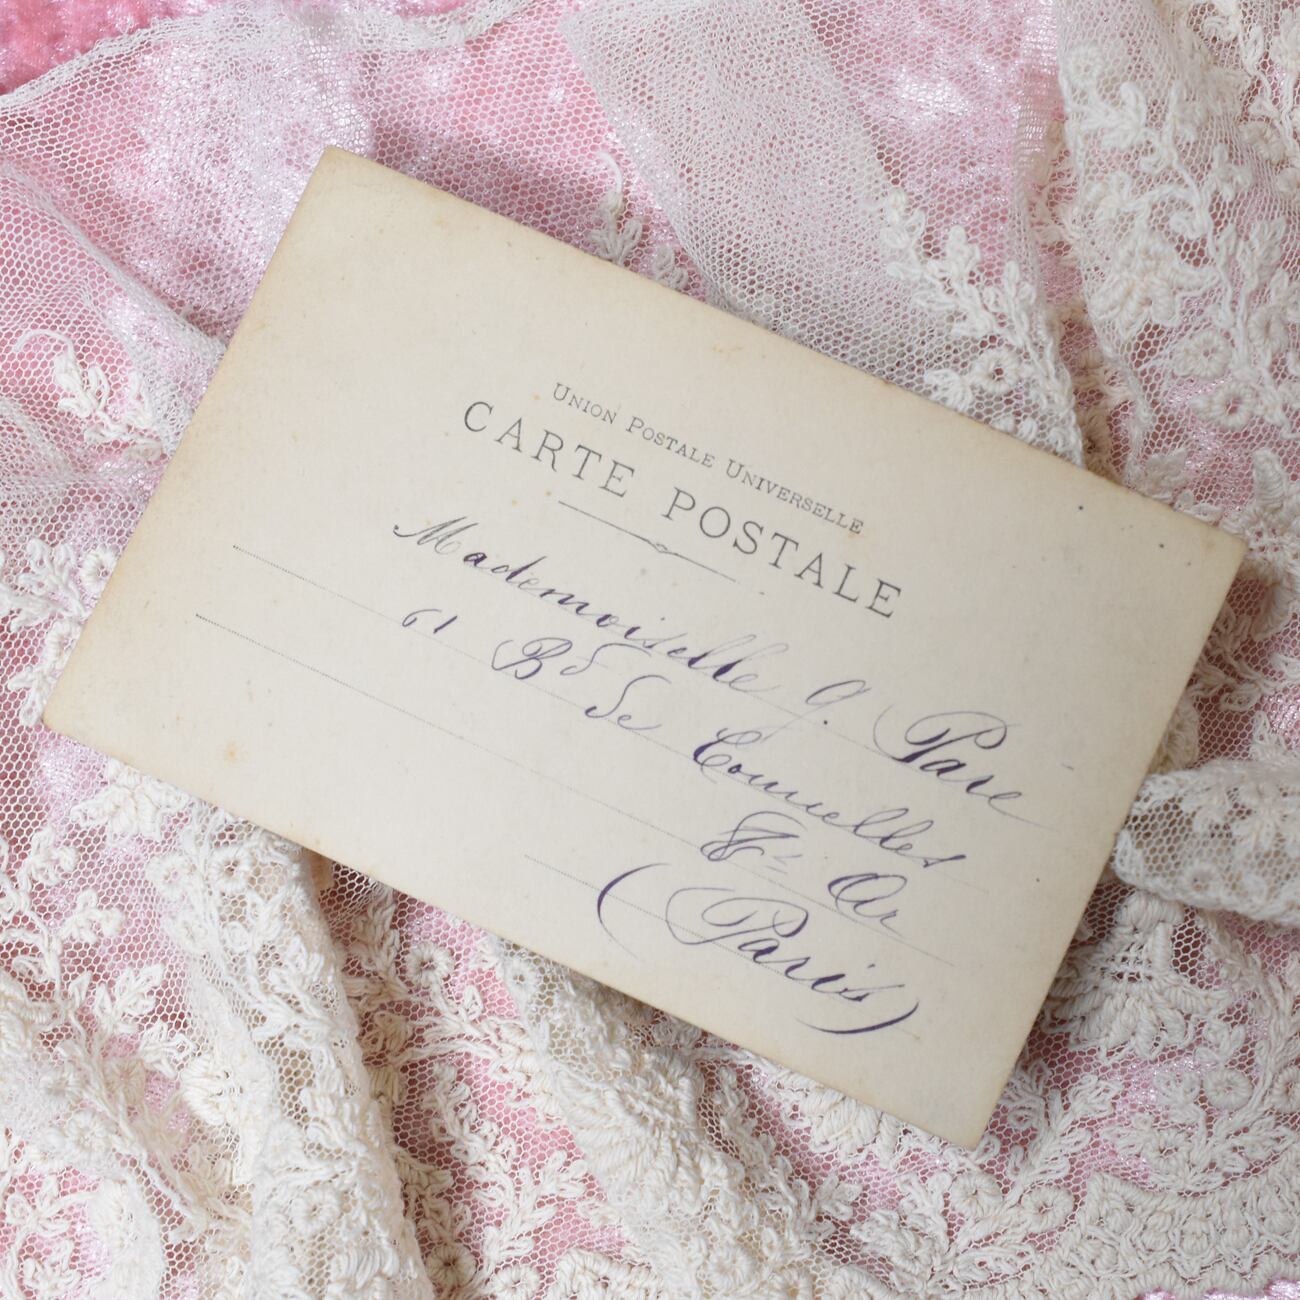 Union Postale Universelle
CARTE POSTALE
Mademoiselle G. Pare
61 Bd de Courcelles
8e Ar
(Paris)